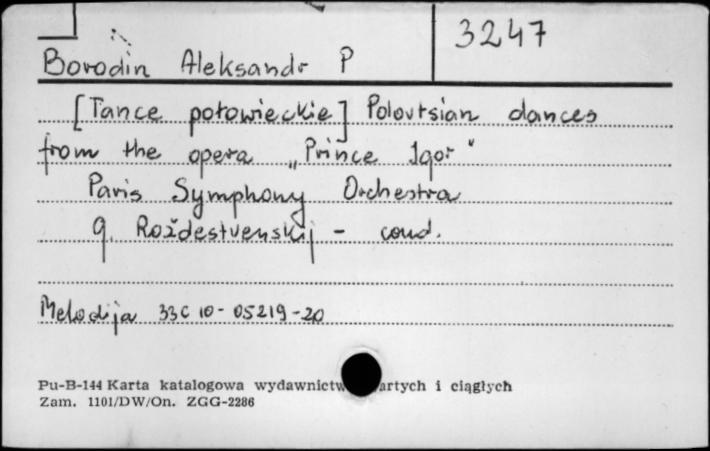 3247
Borodin Aleksandr P
[Tance połowieckie] Polovtsian dances
from the opera „Prince Igor"
Paris Symphony Orchestra
G. Roždestvenskij - cond.
Melodija 33C 10-05219-20
Pu-B-144 Karta katalogowa wydawnictw artych i ciągłych
Zam. 1101/DW/On. ZGG-2286